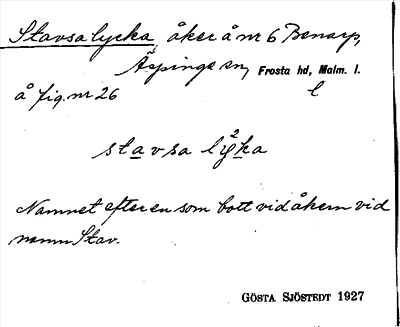 Stavsalycka, åker å nr 6 Benarp,
Äspinge sn, Frosta hd, Malm. l.
å fig. nr 26 l
stavsa lyka
Namnet efter en som bott vid åkern vid
namn Stav.
GÖSTA SJÖSTEDT 1927